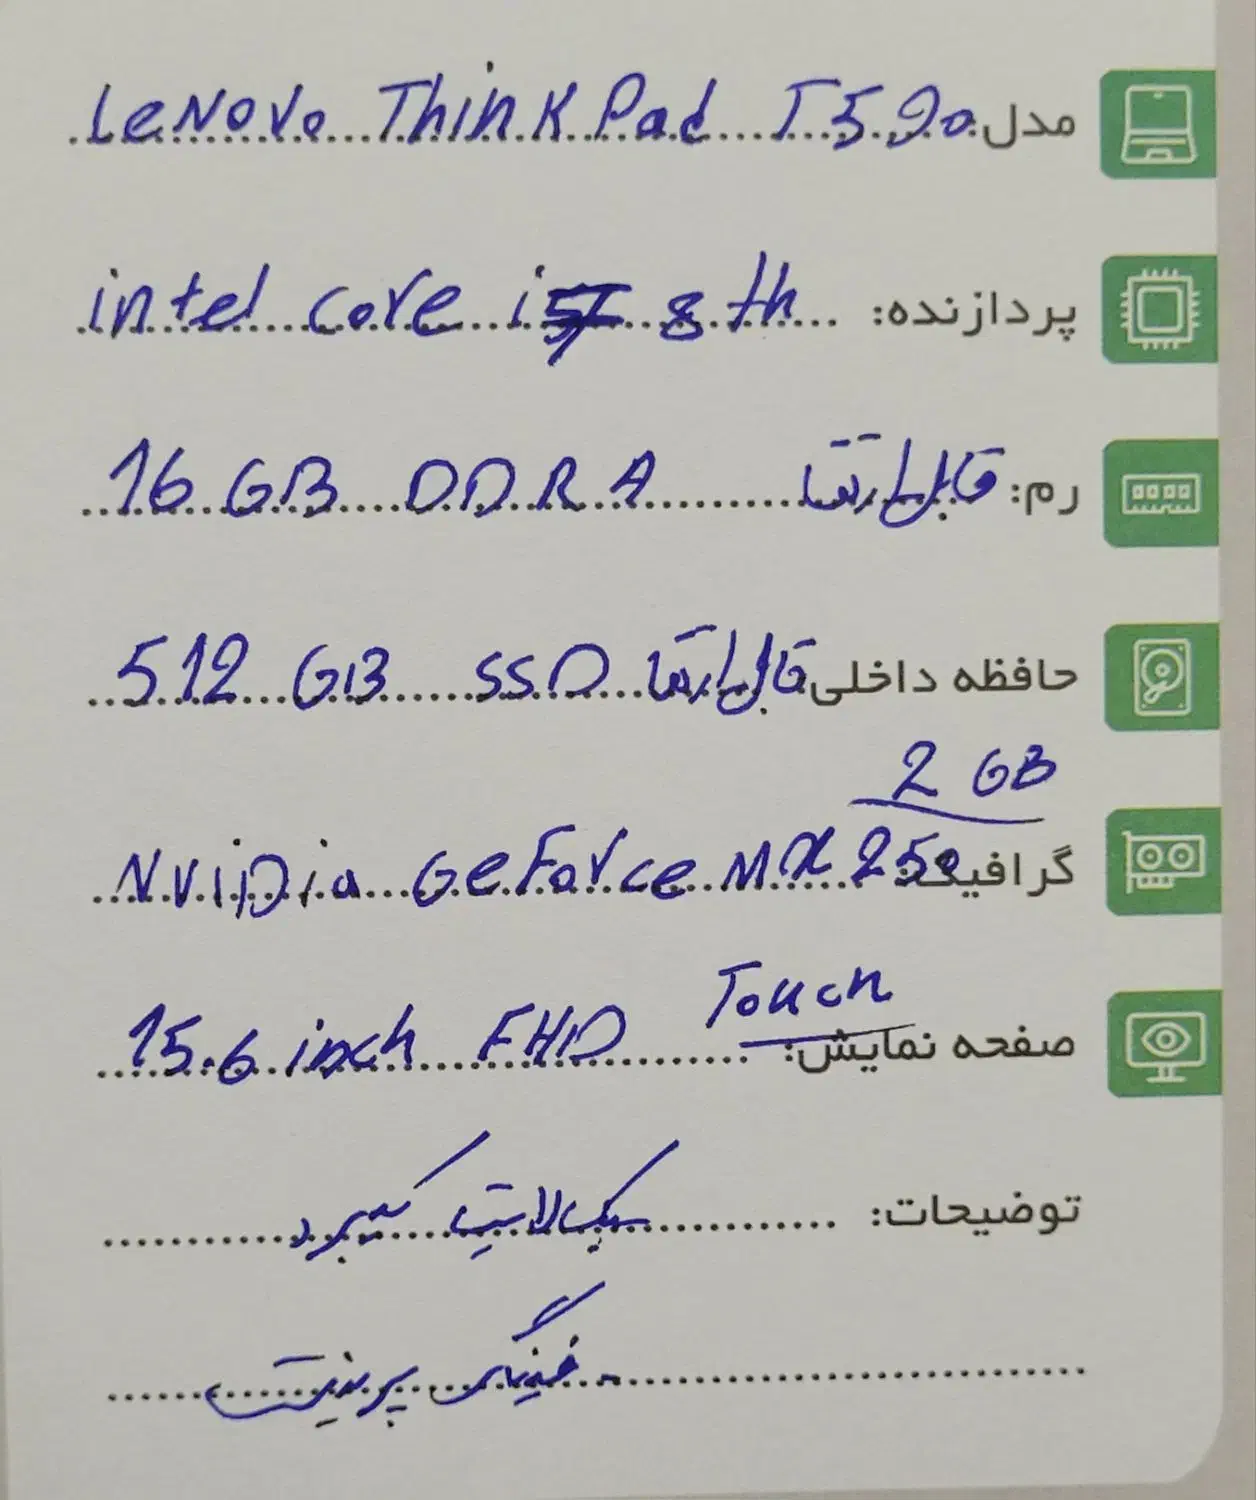 مدل Lenovo ThinkPad T590
پردازنده: intel core i 8th
رم: قابل ارتقا 16 GB DDR4
حافظه داخلی قابل ارتقا 512 GB SSD
2 GB
گرافیک NViDia GeForce MX 250
Touch
صفحه نمایش: 15.6 inch FHD
توضیحات: بک لایت کیبرد
فینگر پرینت